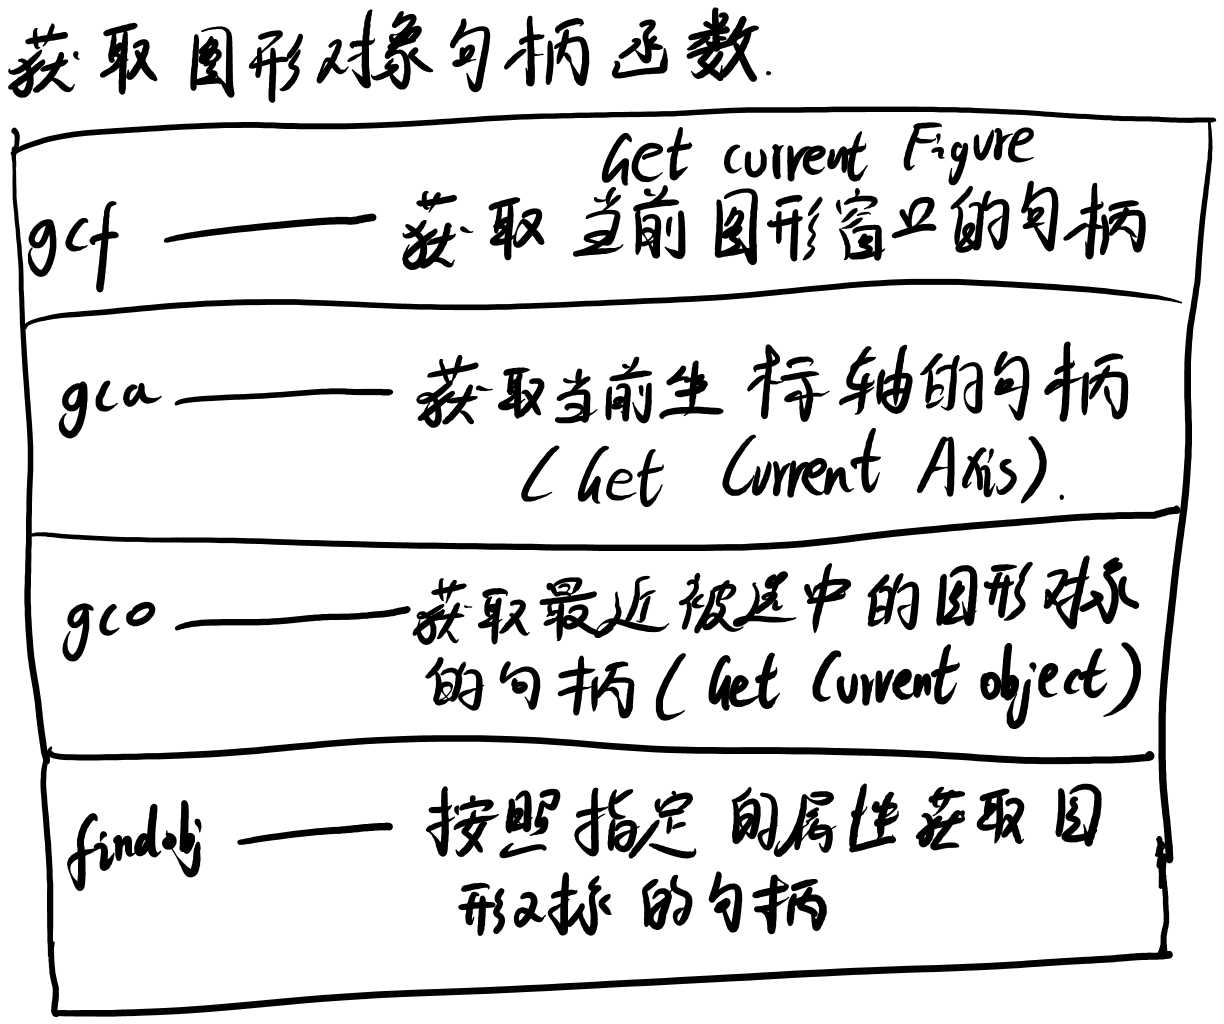 获取图形对象句柄函数.
Get current Figure
gcf —— 获取当前图形窗口的句柄
gca —— 获取当前坐标轴的句柄
(Get Current Axis).
gco —— 获取最近被选中的图形对象
的句柄(Get Current object)
findobj —— 按照指定的属性获取图
形对象的句柄